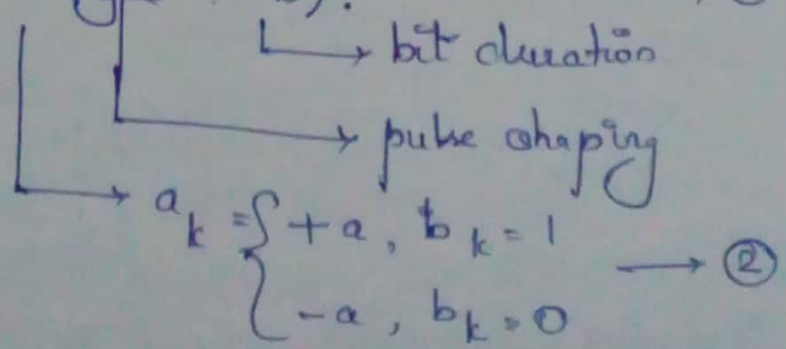 → bit duration
→ pulse shaping
→ a_k = { +a, b_k = 1
-a, b_k = 0 → ②